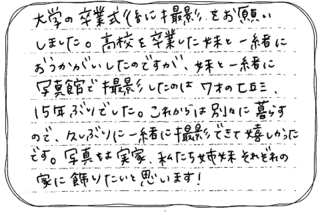 大学の卒業式後に撮影をお願い
しました。高校を卒業した妹と一緒に
おうかがいしたのですが、妹と一緒に
写真館で撮影したのは7才の七五三、
15年ぶりでした。これからは別々に暮らす
ので、久しぶりに一緒に撮影できて嬉しかった
です。写真は実家、私たち姉妹それぞれの
家に飾りたいと思います!